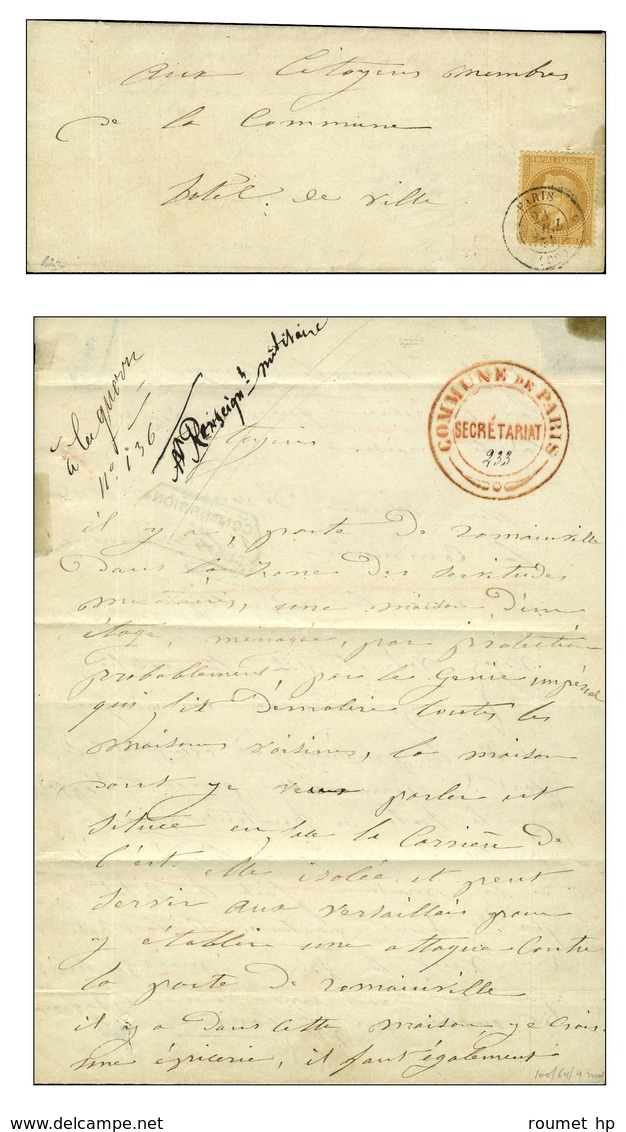 aux Citoyens membres
de la Commune
hotel de ville
EMPIRE FRANCAIS
PARIS
(60)
à la guerre
n° 136
Renseignts militaire
COMMUNE DE PARIS
SECRÉTARIAT
233
Citoyens
COMMISSION
il y a, porte de romainville
dans la zone des servitudes
militaires, une maison d'un
étage, ménagée, par protection
probablement, par le genie impérial
qui fit démolire toutes les
maisons voisines, la maison
dont je veux parler est
située en face la Carrière de
l'est elle isolée et peut
servir aux versaillais pour
y établir une attaque contre
la porte de romainville
il y a dans cette maison, je crois
une épicerie, il faut également
© roumet hp